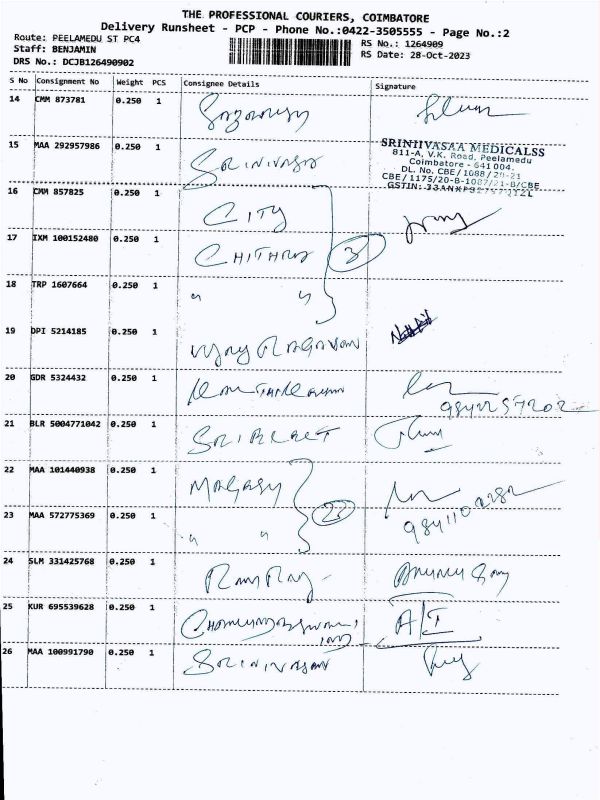 THE PROFESSIONAL COURIERS, COIMBATORE
Delivery Runsheet - PCP - Phone No.:0422-3505555 - Page No.:2
Route: PEELAMEDU ST PC4
RS No.: 1264909
Staff: BENJAMIN
RS Date: 28-Oct-2023
DRS No.: DCJB126490902
S No Consignment No Weight PCS Consignee Details Signature
14 CMM 873781 0.250 1
15 MAA 292957986 0.250 1 SRINIVASA
SRINIIVASAA MEDICALSS
811-A, V.K. Road, Peelamedu
Coimbatore - 641 004.
DL. No. CBE/1088/20-21
CBE/1175/20-B-1087/21-B/CBE
16 CMM 857825 0.250 1 CITY
17 IXM 100152480 0.250 1 CHITHRA 3
18 TRP 1607664 0.250 1 " "
19 DPI 5214185 0.250 1 VIJAY RAGAVAN
20 GDR 5324432 0.250 1
21 BLR 5004771042 0.250 1
22 MAA 101440938 0.250 1
23 MAA 572775369 0.250 1 " "
24 SLM 331425768 0.250 1 RAM RAJ
25 KUR 695539628 0.250 1
26 MAA 100991790 0.250 1 SRINIVASAN